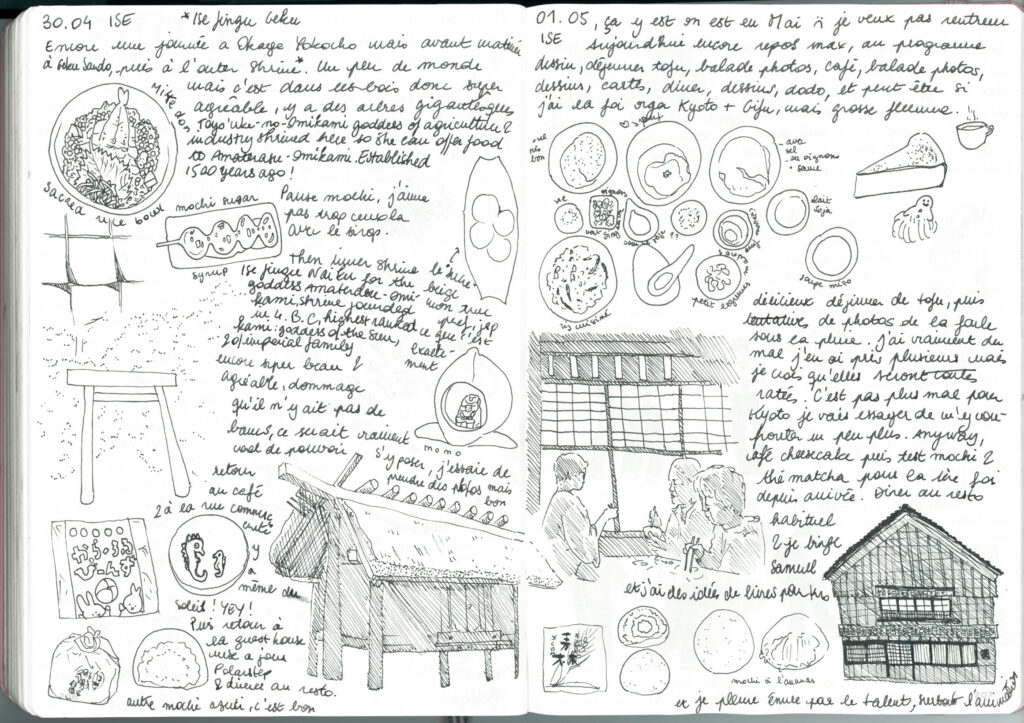 30.04 ISE *Ise Jingu Geku
Encore une journée à Okage Yokocho mais avant matinée
à Geku Sando, puis à l'outer shrine*. Un peu de monde
mais c'est dans les bois donc super
agréable, y a des arbres gigantesques
Toyo'uke-no-Omikami goddess of agriculture &
industry shrined here so she can offer food
to Amaterasu-Omikami. Established
1500 years ago!
sacred rice bowl
mochi sugar
syrup
Pause mochi, j'aime
pas trop
avec le sirop.
then inner shrine
Ise Jingu Naiku for the
goddess Amaterasu-Omi-
kami, shrine founded
in 4. B.C, highest ranked
kami: goddess of the sun,
& of imperial family
ce que c'est
exacte-
ment
encore super beau &
agréable, dommage
qu'il n'y ait pas de
bancs, ce serait vraiment
cool de pouvoir
s'y poser, j'essaie de
prendre des photos mais
bon
momo
retour
au café
& à la rue commer
y
a
même du
soleil! YEY!
Puis retour à
la guest house
mise à jour
Polarstep
& dîner au resto.
autre mochi azuki, c'est bon
01.05, ça y est on est en Mai je veux pas rentrer
ISE Aujourd'hui encore repos max, au programme
dessin, déjeuner tofu, balade photos, café, balade photos,
dessins, carte, dîner, dessins, dodo, et peut être si
j'ai la foi Kyoto + Gifu, mais grosse flemme.
très
bon
avec
sel
ou oignons
+ sauce
lait
soja
soupe miso
petit légumes
riz cuisiné
délicieux déjeuner de tofu, puis
tentatives de photos de la foule
sous la pluie. J'ai vraiment du
mal j'en ai pris plusieurs mais
je crois qu'elles seront toutes
ratées. C'est pas plus mal pour
Kyoto je vais essayer de m'y con-
fronter un peu plus. Anyway,
café cheesecake puis test mochi &
thé matcha pour la 1ère foi
depuis arrivée. Dîner au resto
habituel
& je binge
Samuel
et j'ai des idées de livres pour
mochi à l'ananas
et je pleure émue par le talent, surtout l'animation